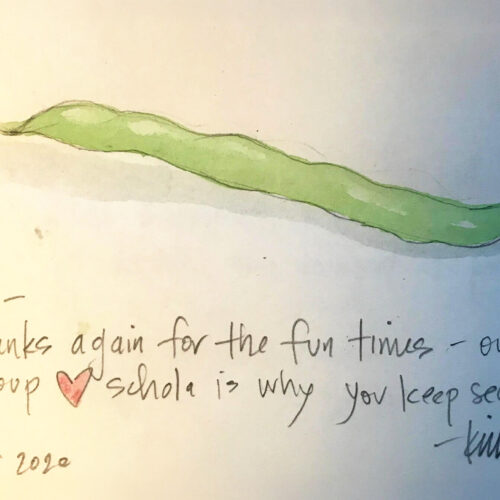 anks again for the fun times - ou
oup ❤ schola is why you keep see
- Kim
2020